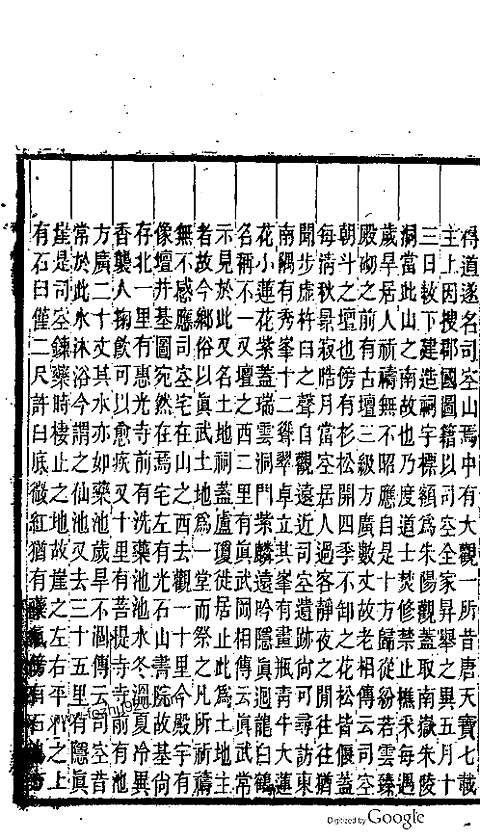 得道遂名司空山焉中有大觀一所昔唐天寶七載
主上因搜郡國圖籍以司空全家昇舉之異五月十
三日敕下建造祠宇標額為朱陽觀蓋取南嶽朱陵
洞當此山之南故也乃度道士焚修禁止樵采每遇
歲旱居人祈禱無不昭應自是十方歸從紛若雲臻
殿砌之前有古壇三級方廣數丈故老相傳云司空
朝斗之壇也傍有杉松開四季不卸之花松皆偃蓋
每清秋景寂皓月當空居人過客靜夜之間往往猶
聞步虛杵臼之聲自觀遠近司空遺跡尚可尋訪東
南隅有秀峯十二聳翠卓立其峯有畫瓶青牛大蓮
花小蓮花紫蓋瑞雲洞門紫麟遠吟隱眞迴龍白鶴
名稱不一又壇之西二里有眞武岡相傳云眞武常
示見於此又名土地祠蓋盧瓊徙居止此為土地主
者故今鄉俗以眞武土地為一堂而祭之凡所祈禱
無不感應司空宅在山之西去觀一十里今殿宇有
像壇井基圖宛然在焉宅左有光石山書院故基尚
存北一里有惠光寺前有洗藥池池水冬溫夏冷異
香襲人掬飲可以愈疾又十里有菩提寺寺前有池
方廣二十丈其水亦如藥池歲旱不涸傳云司空昔
常於此水沐浴今謂之仙池又去三十五里有隱眞
崖是司空鍊藥時棲止之地故崖之左右平石之上
有石臼僅二尺許臼底微紅猶有藥氣傍有石
Digitized by Google